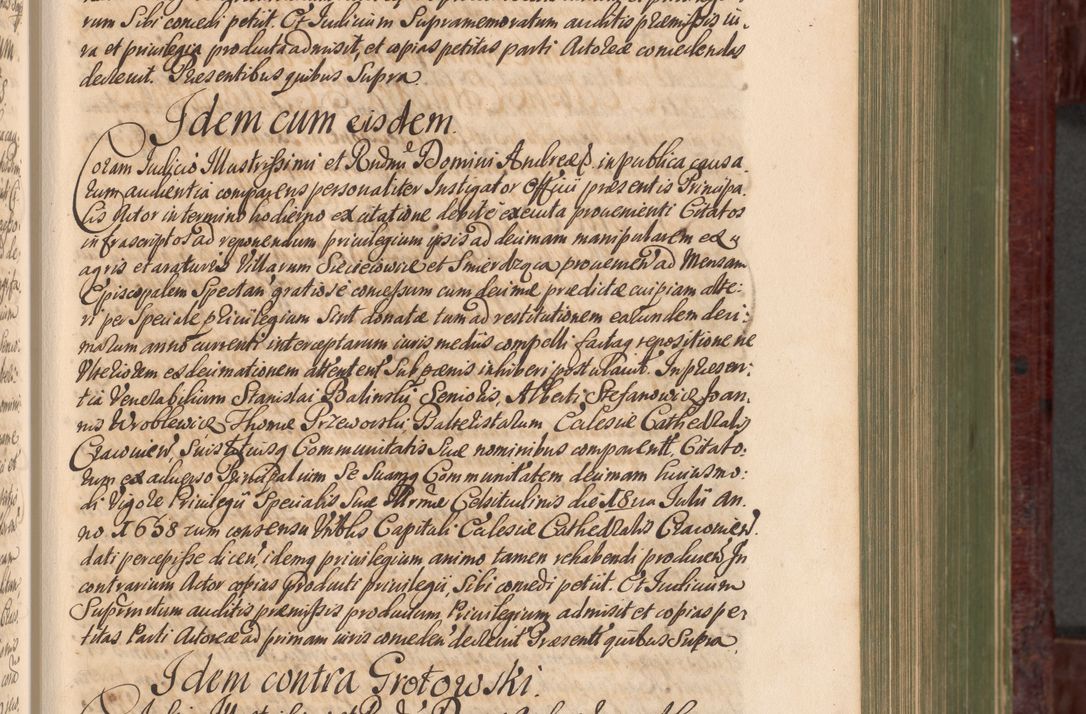 rum Sibi concedi petiit. Et Iudicium Supramemoratum auditis præmissis iu-
ra et privilegia producta admisit, et copias petitas parti Actoreæ concedendas
decrevit. Præsentibus quibus Supra.
Idem cum eisdem.
Coram Iudicio Illustrissimi et Rndmi Domini Andreæ in publica causa
rum audientia comparens personaliter Instigator Officii præsentis Principa
lis Actor in termino hodierno ex citatione debite executa provenienti Citatos
infrascriptos ad reponendum privilegium ipsis ad decimam manipularem ex
agris et araturis Villarum Siecieiowice et Smierdząca provenien ad Mensam
Episcopalem Spectan gratiose concessum cum decimæ prædictæ cuipiam alte:
ri per Speciale privilegium Sint donatæ tum ad restitutionem earundem deci:
marum anno currenti interceptarum iuris mediis compelli factaq repositione ne
Ulteriorem ex decimationem attentent Sub pænis inhiberi postulavit. In præsen:
tia Venerabilium Stanislai Balinski Senioris, Alberti Stefanowic Ioan
nis Wroblewic Thomæ Przeworski Balteristarum Ecclesiæ Cathedralis
Cracovien, Suis totiusq Communitatis Suæ nominibus comparenti, Citato:
rum ex adverso Se Suamq Communitatem decimam huiusmo:
di Vigore Privilegii Specialis Suæ Celsitudinis die 18va Iulii an
no 1658 cum consensu Vrblis Capituli Ecclesiæ Cathedralis Cracovien.
dati percepisse dicen, idemq privilegium animo tamen rehabendi producen In
contrarium Actor copias producti privilegii Sibi concedi petiit. Et Iudicium
Supramtum auditis præmissis productum Privilegium admisit et copias pe-
titas Parti Actoreæ ad primam iuris conceden decrevit Præsenti quibus Supra.
Idem contra Grotowski.